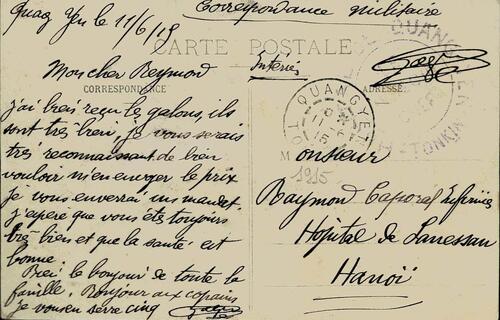 Quang Yen le 11/6/15
Correspondance militaire
CARTE POSTALE
Mon cher Reymond
CORRESPONDANCE
ADRESSE
j'ai bien reçu les galons, ils
sont très bien, je vous serais
très reconnaissant de bien
vouloir m'envoyer le prix
je vous enverrai un mandat.
j'espère que vous êtes toujours
très bien et que la santé est
bonne.
Bien le bonjour de toute la
famille. Bonjour aux copains
je vous en serre cinq
QUANG YEN
TONKIN
QUANG
TONKIN
1915
Monsieur
Raymond Caporal Infirmier
Hôpital de Lanessan
Hanoï